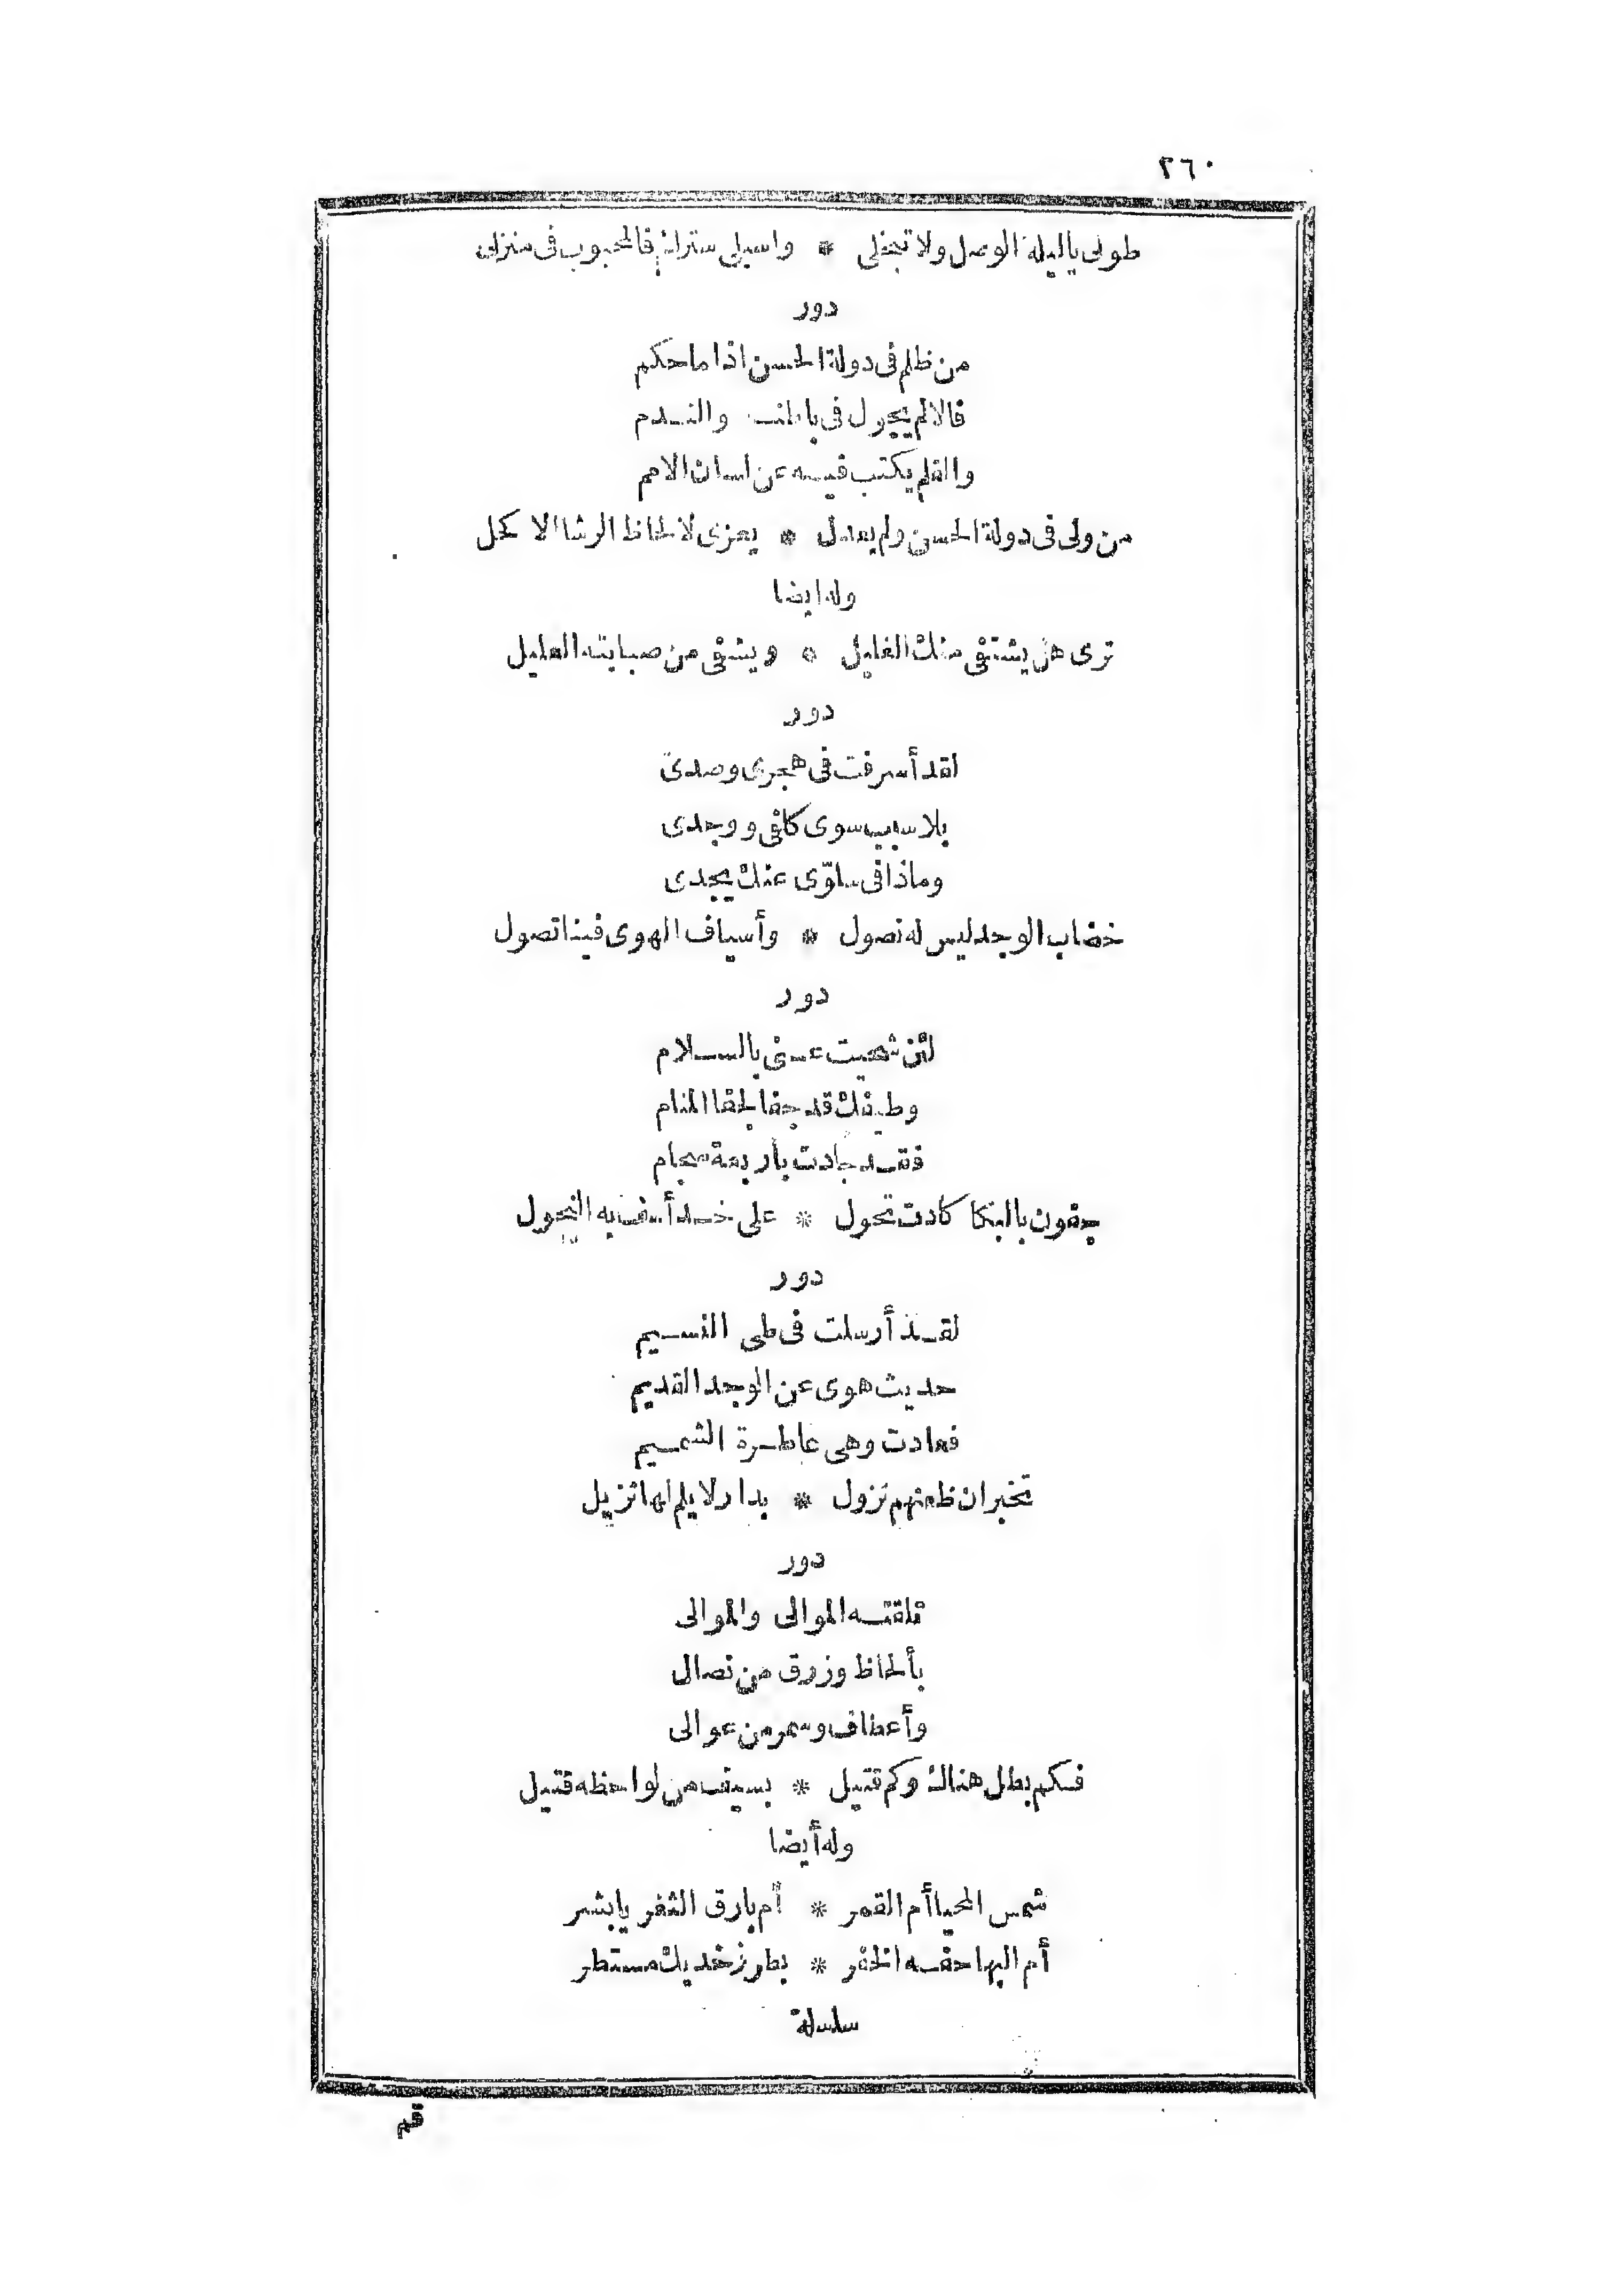 ٢٦٠
طولى ياليلة الوصل ولا تنجلى * واسبلى سترك فالمحبوب فى منزلى
دور
من ظلم فى دولة الحسن اذا ما حكم
فالالم يجول فى باطنه والنـدم
والقلم يكتب فيـه عن لسان الامم
من ولى فى دولة الحسن ولم يعدل * يعزى لالحاظ الرشا الاكحل
وله ايضا
ترى هل يشتفى منك الغليل * ويشفى من صبابته العليل
دور
لقد أسرفت فى هجرى وصدى
بلا سبب سوى كلفى ووجدى
وماذا فى سلوّى عنك يجدى
خضاب الوجد ليس له نصول * وأسياف الهوى فينا تصول
دور
لئن شحيت عـنى بالسـلام
وطيفك قد جفا لجفا المنام
فقـد جادت باربعة سجام
جفون بالبكا كادت تحول * على خـد أسف به النحول
دور
لقـد أرسلت فى طى النسـيم
حديث هوى عن الوجد القديم
فعادت وهى عاطـرة الشمـيم
تخبر ان ظعنهم نزول * بدار لا يلم لها نزيل
دور
تلقتـه الموالى والموالى
بألحاظ وزرق من نصال
وأعطاف وسمر من عوالى
فـكم بطل هناك وكم قتيل * بسيف من لواحظه قتيل
وله أيضا
شمس المحيا أم القمر * أم بارق الثغر يا بشر
أم البها حفـه الخفر * بطرز خديك مستطر
سلسلة
قم